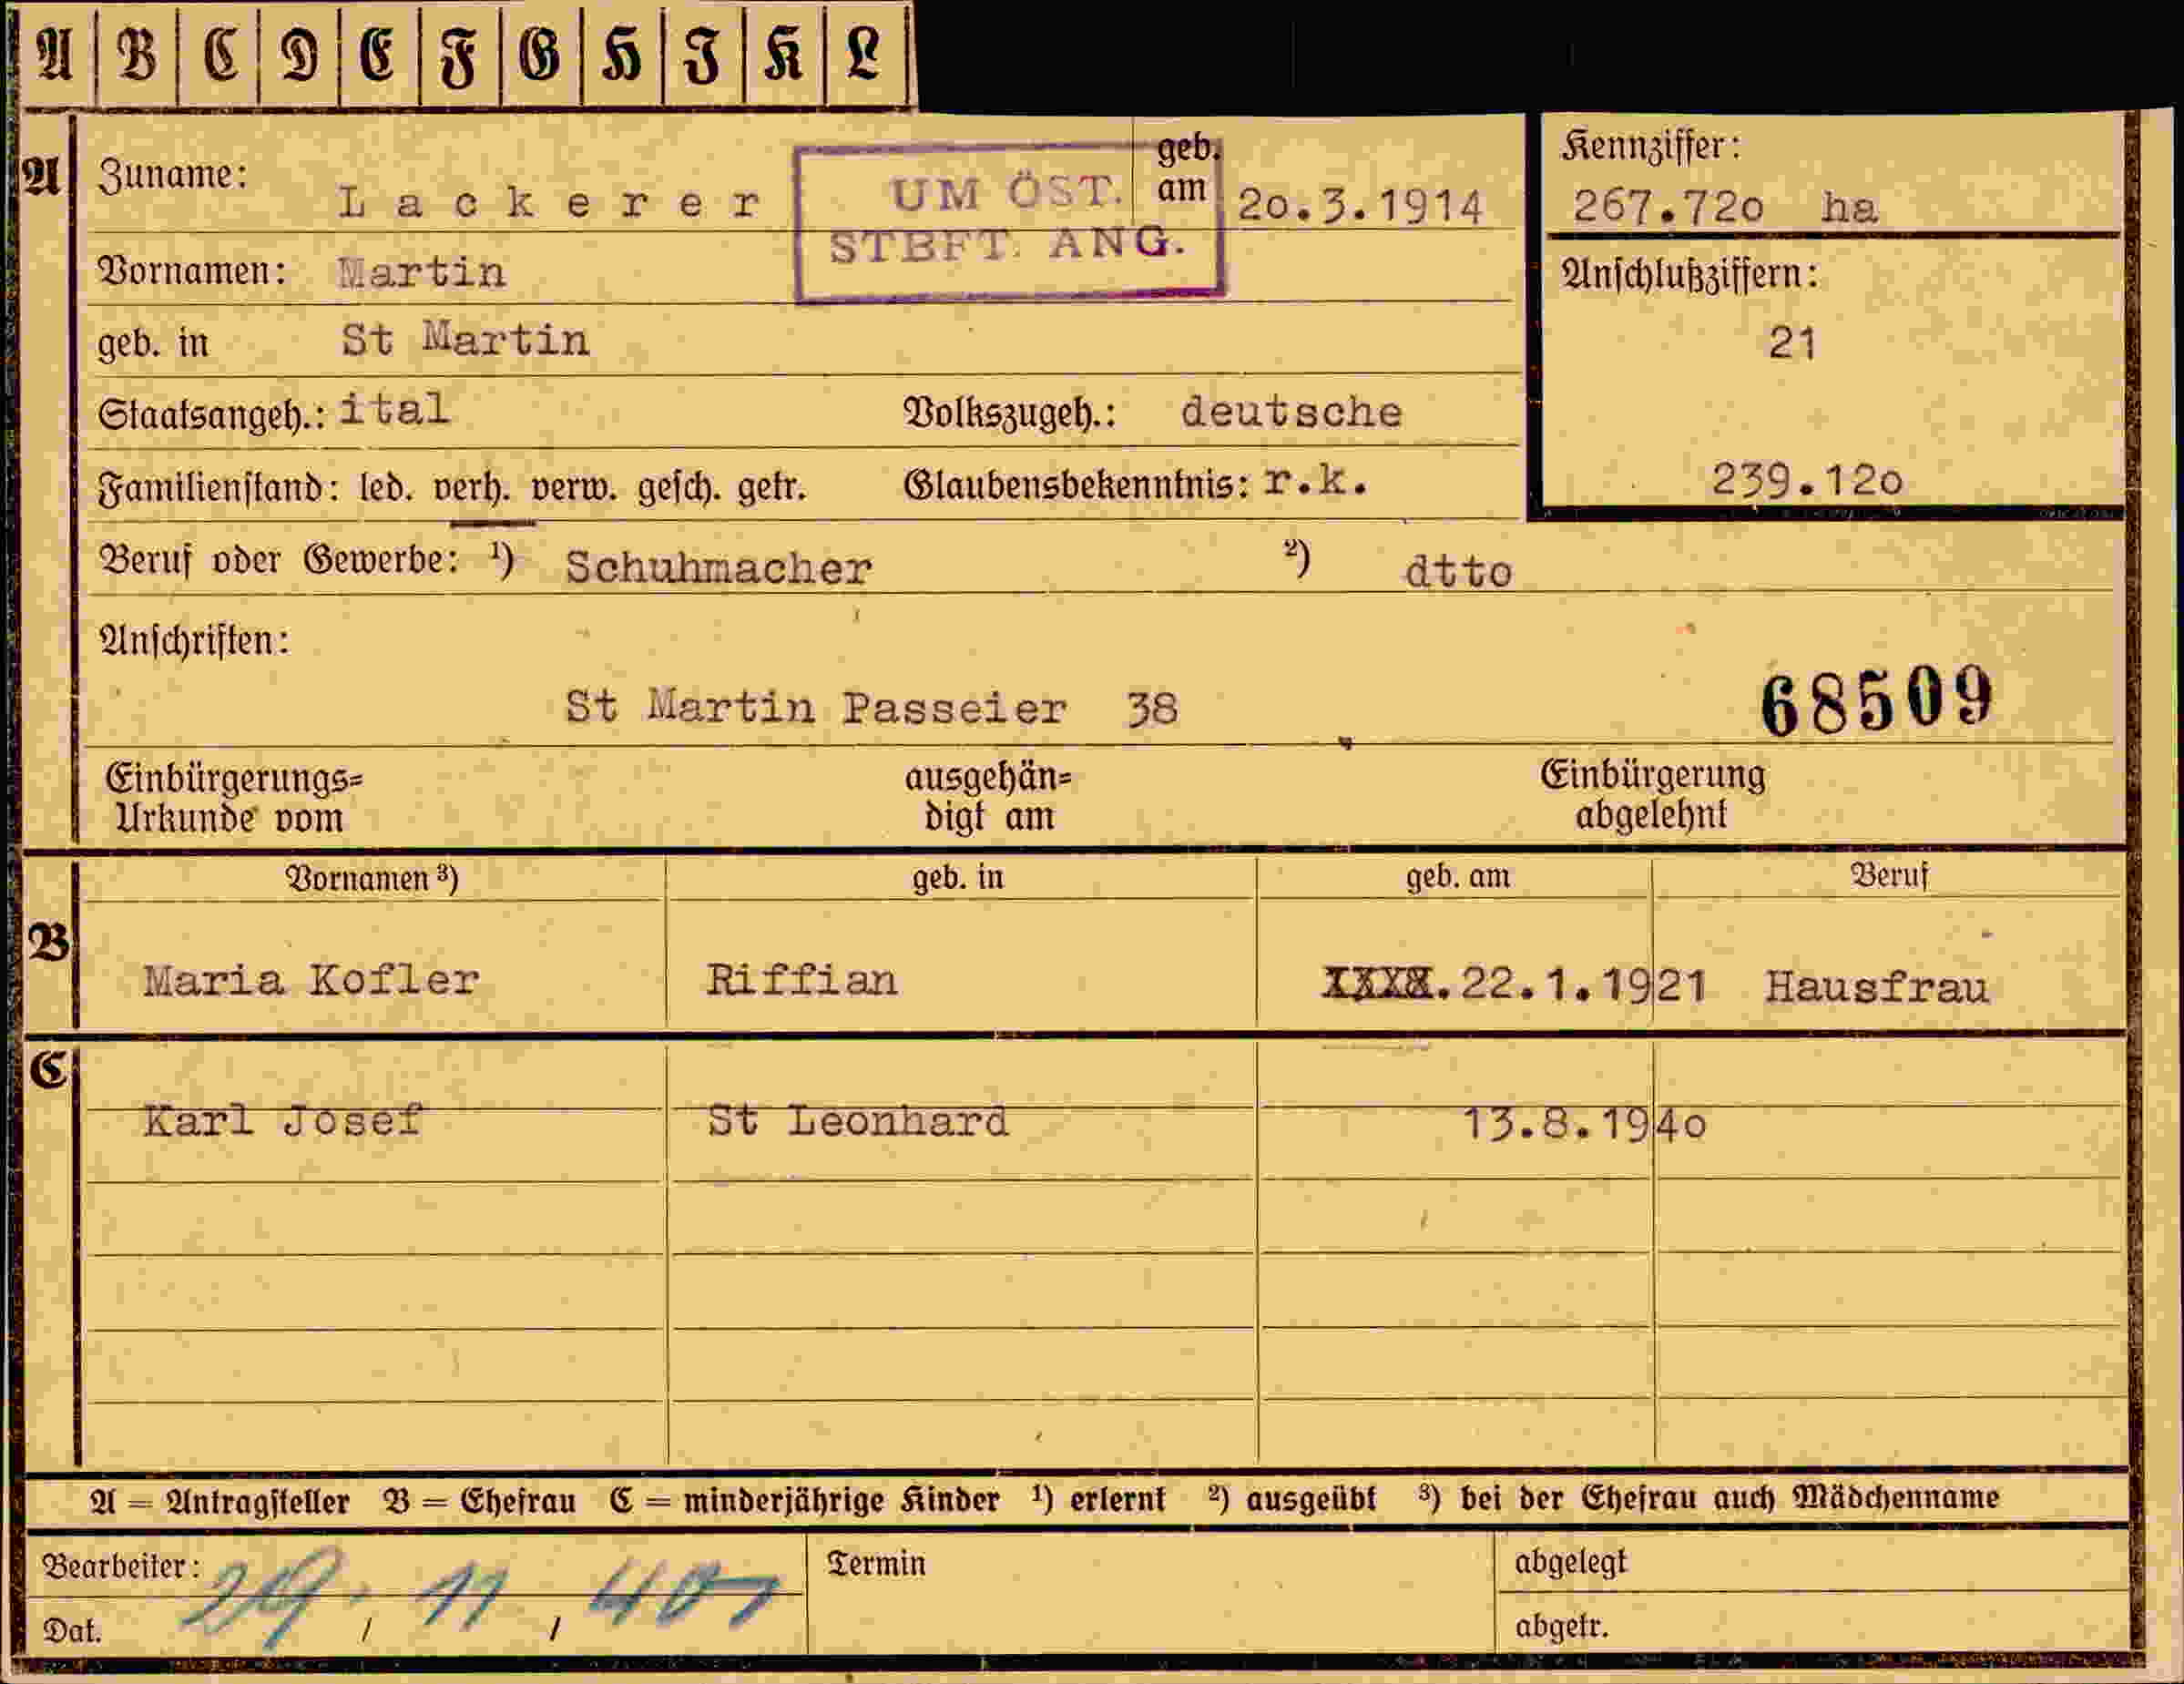 A B C D E F G H I K L
A Zuname: Lackerer geb. am 20.3.1914
UM ÖST.
STBFT. ANG.
Kennziffer:
267.720 ha
Vornamen: Martin
Anschlußziffern:
geb. in St Martin
21
Staatsangeh.: ital Volkszugeh.: deutsche
Familienstand: led. verh. verw. gesch. getr. Glaubensbekenntnis: r.k.
239.120
Beruf oder Gewerbe: ¹) Schuhmacher ²) dtto
Anschriften:
St Martin Passeier 38
68509
Einbürgerungs=
Urkunde vom
ausgehän=
digt am
Einbürgerung
abgelehnt
Vornamen ³) geb. in geb. am Beruf
B Maria Kofler Riffian 22.1.1921 Hausfrau
C
Karl Josef St Leonhard 13.8.1940
A = Antragsteller B = Ehefrau C = minderjährige Kinder ¹) erlernt ²) ausgeübt ³) bei der Ehefrau auch Mädchenname
Bearbeiter: Termin abgelegt
Dat. 29 / 11 / 40 abgetr.